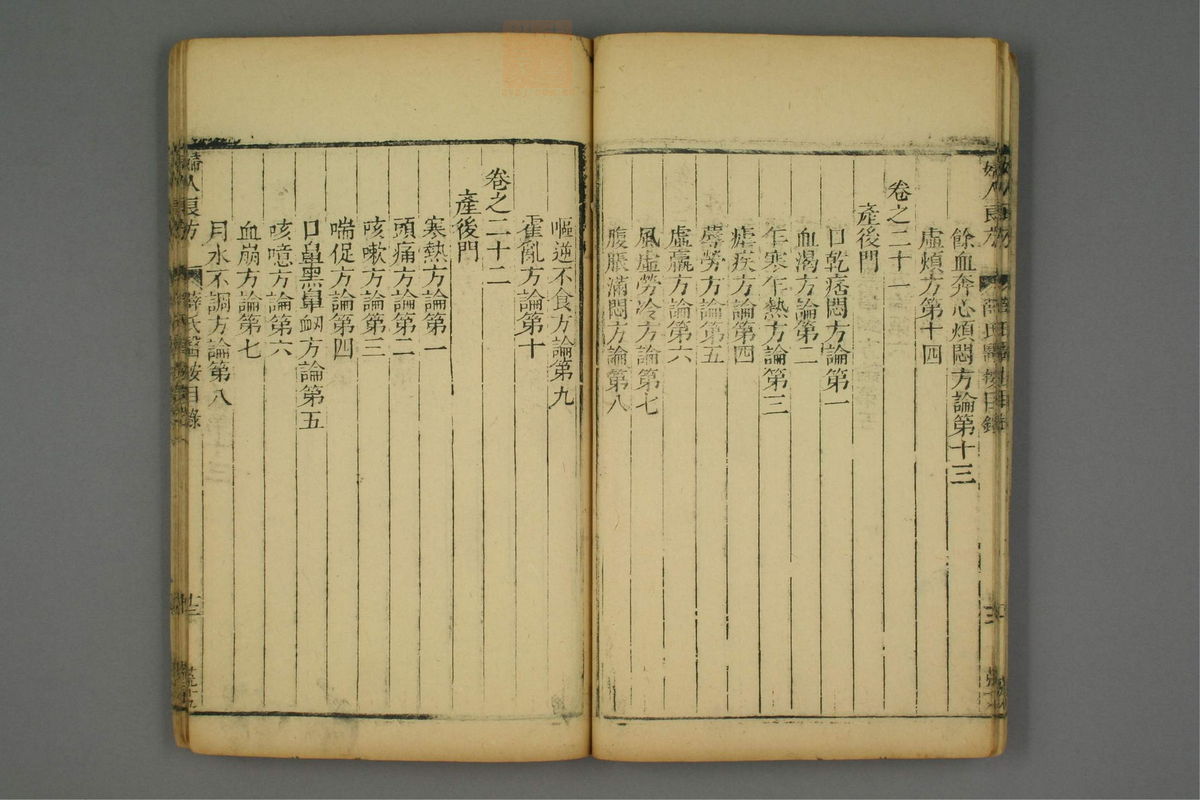 餘血奔心煩悶方論第十三
虛煩方第十四
卷之二十一
產後門
口乾痞悶方論第一
血渴方論第二
乍寒乍熱方論第三
瘧疾方論第四
蓐勞方論第五
虛羸方論第六
風虛勞冷方論第七
腹脹滿悶方論第八
嘔逆不食方論第九
霍亂方論第十
卷之二十二
產後門
寒熱方論第一
頭痛方論第二
咳嗽方論第三
喘促方論第四
口鼻黑鼻衂方論第五
咳噫方論第六
血崩方論第七
月水不調方論第八
婦人良方 薛氏醫按目錄